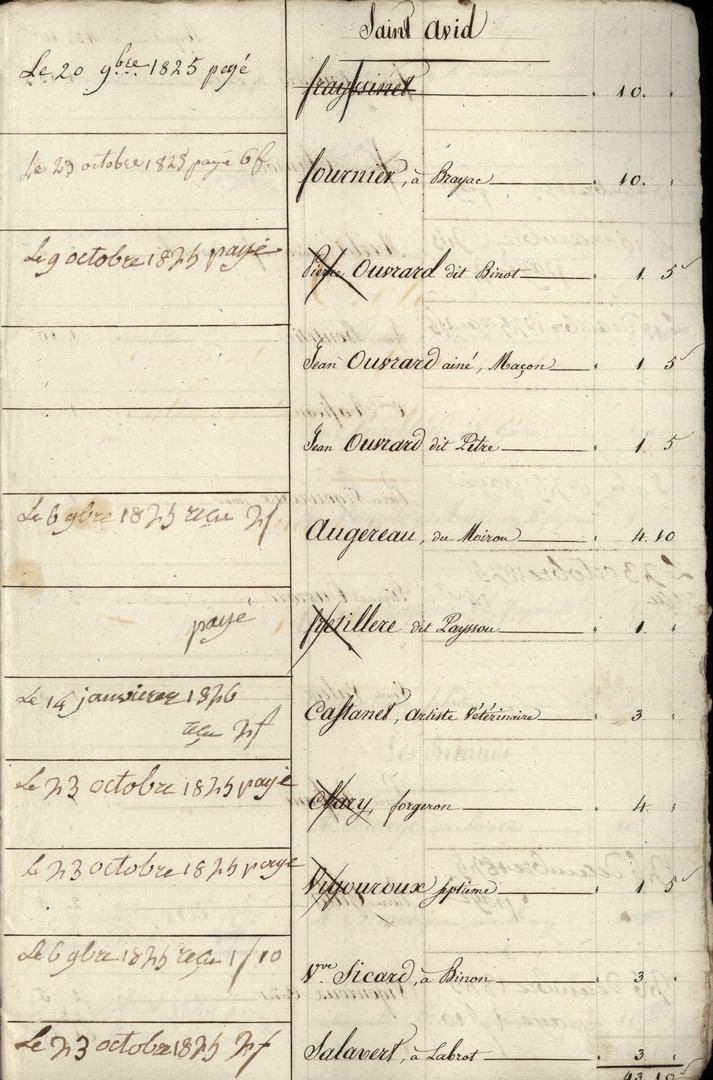 Saint Avid
Le 20 9bre 1825 payé
frayssinet 10. "
Le 23 octobre 1825 payé 6 f
fournier, à Brayac 10. "
Le 9 octobre 1825 payé
Pierre Ouvrard dit Binot 1. 5
Jean Ouvrard ainé, Maçon 1. 5
Jean Ouvrard dit Pètre 1. 5
Le 6 9bre 1825 reçu 2f
Augereau, du Moirou 4. 10
payé
dit Payssou 1. "
Le 14 janvierer 1826
reçu 2f
Castanet, Artiste Vétérinaire 3. "
Le 23 octobre 1825 payé
Chary, forgeron 4. "
le 23 octobre 1825 paye
Vigouroux septime 1. 5
Le 6 9bre 1825 reçu 1f 10
Vve Sicard, à Binon 3. "
Le 23 octobre 1825 2f
Salavert, à Labrot 3. "
43. 10